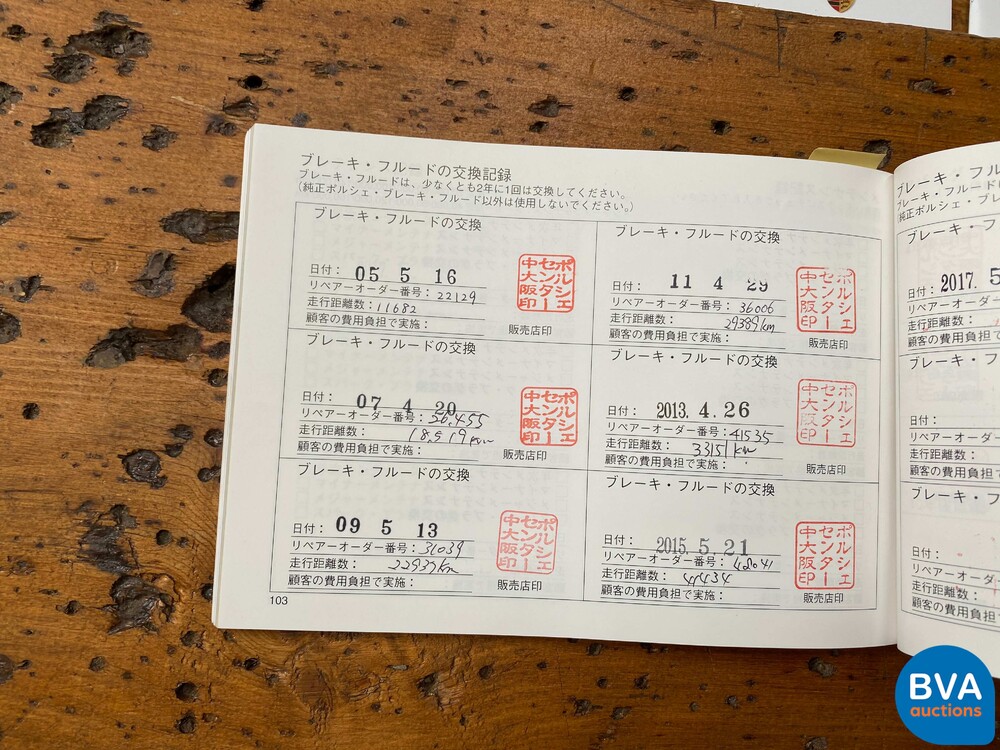 ブレーキ・フルードの交換記録
ブレーキ・フルードは、少なくとも2年に1回は交換してください。
(純正ポルシェ・ブレーキ・フルード以外は使用しないでください。)
ブレーキ・フルードの交換
日付: 05 5 16
リペアーオーダー番号: 22129
走行距離数: 11682
顧客の費用負担で実施:
ポルシェセンター中大阪印
販売店印
ブレーキ・フルードの交換
日付: 07 4 20
リペアーオーダー番号: 26,455
走行距離数: 18,519km
顧客の費用負担で実施:
ポルシェセンター中大阪印
販売店印
ブレーキ・フルードの交換
日付: 09 5 13
リペアーオーダー番号: 31039
走行距離数: 22937km
顧客の費用負担で実施:
ポルシェセンター中大阪印
販売店印
103
ブレーキ・フルードの交換
日付: 11 4 29
リペアーオーダー番号: 36006
走行距離数: 29389km
顧客の費用負担で実施:
ポルシェセンター中大阪印
販売店印
ブレーキ・フルードの交換
日付: 2013.4.26
リペアーオーダー番号: 41535
走行距離数: 33151km
顧客の費用負担で実施:
ポルシェセンター中大阪印
販売店印
ブレーキ・フルードの交換
日付: 2015.5.21
リペアーオーダー番号: 48041
走行距離数:
顧客の費用負担で実施:
ポルシェセンター中大阪印
販売店印
ブレーキ・フル
ブレーキ・フルードに
(純正ポルシェ・ブレ
ブレーキ・フ
日付: 2017.5
リペアーオーダ
走行距離数:
顧客の費用負担
ブレーキ・フ
日付:
リペアーオーダ
走行距離数:
顧客の費用負担
ブレーキ・フ
日付:
リペアーオーダ
走行距離数:
顧客の費用負担
BVA
auctions